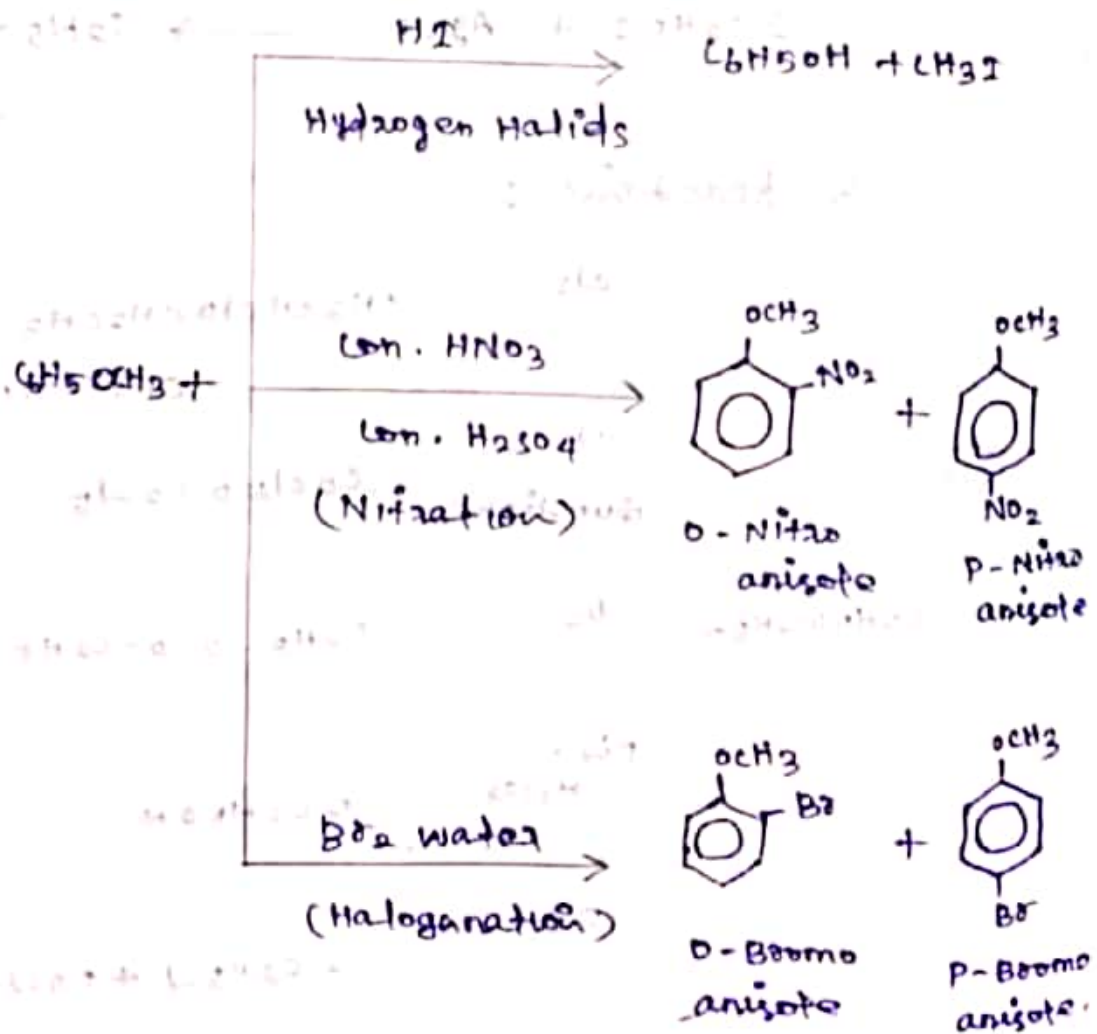 HI
C6H5OH + CH3I
Hydrogen Halids
C6H5OCH3 +
Con. HNO3
Con. H2SO4
(Nitration)
OCH3
NO2
+
OCH3
NO2
O - Nitro
anisole
P - Nitro
anisole
Br2 water
(Haloganation)
OCH3
Br
+
OCH3
Br
O - Bromo
anisole
P - Bromo
anisole.